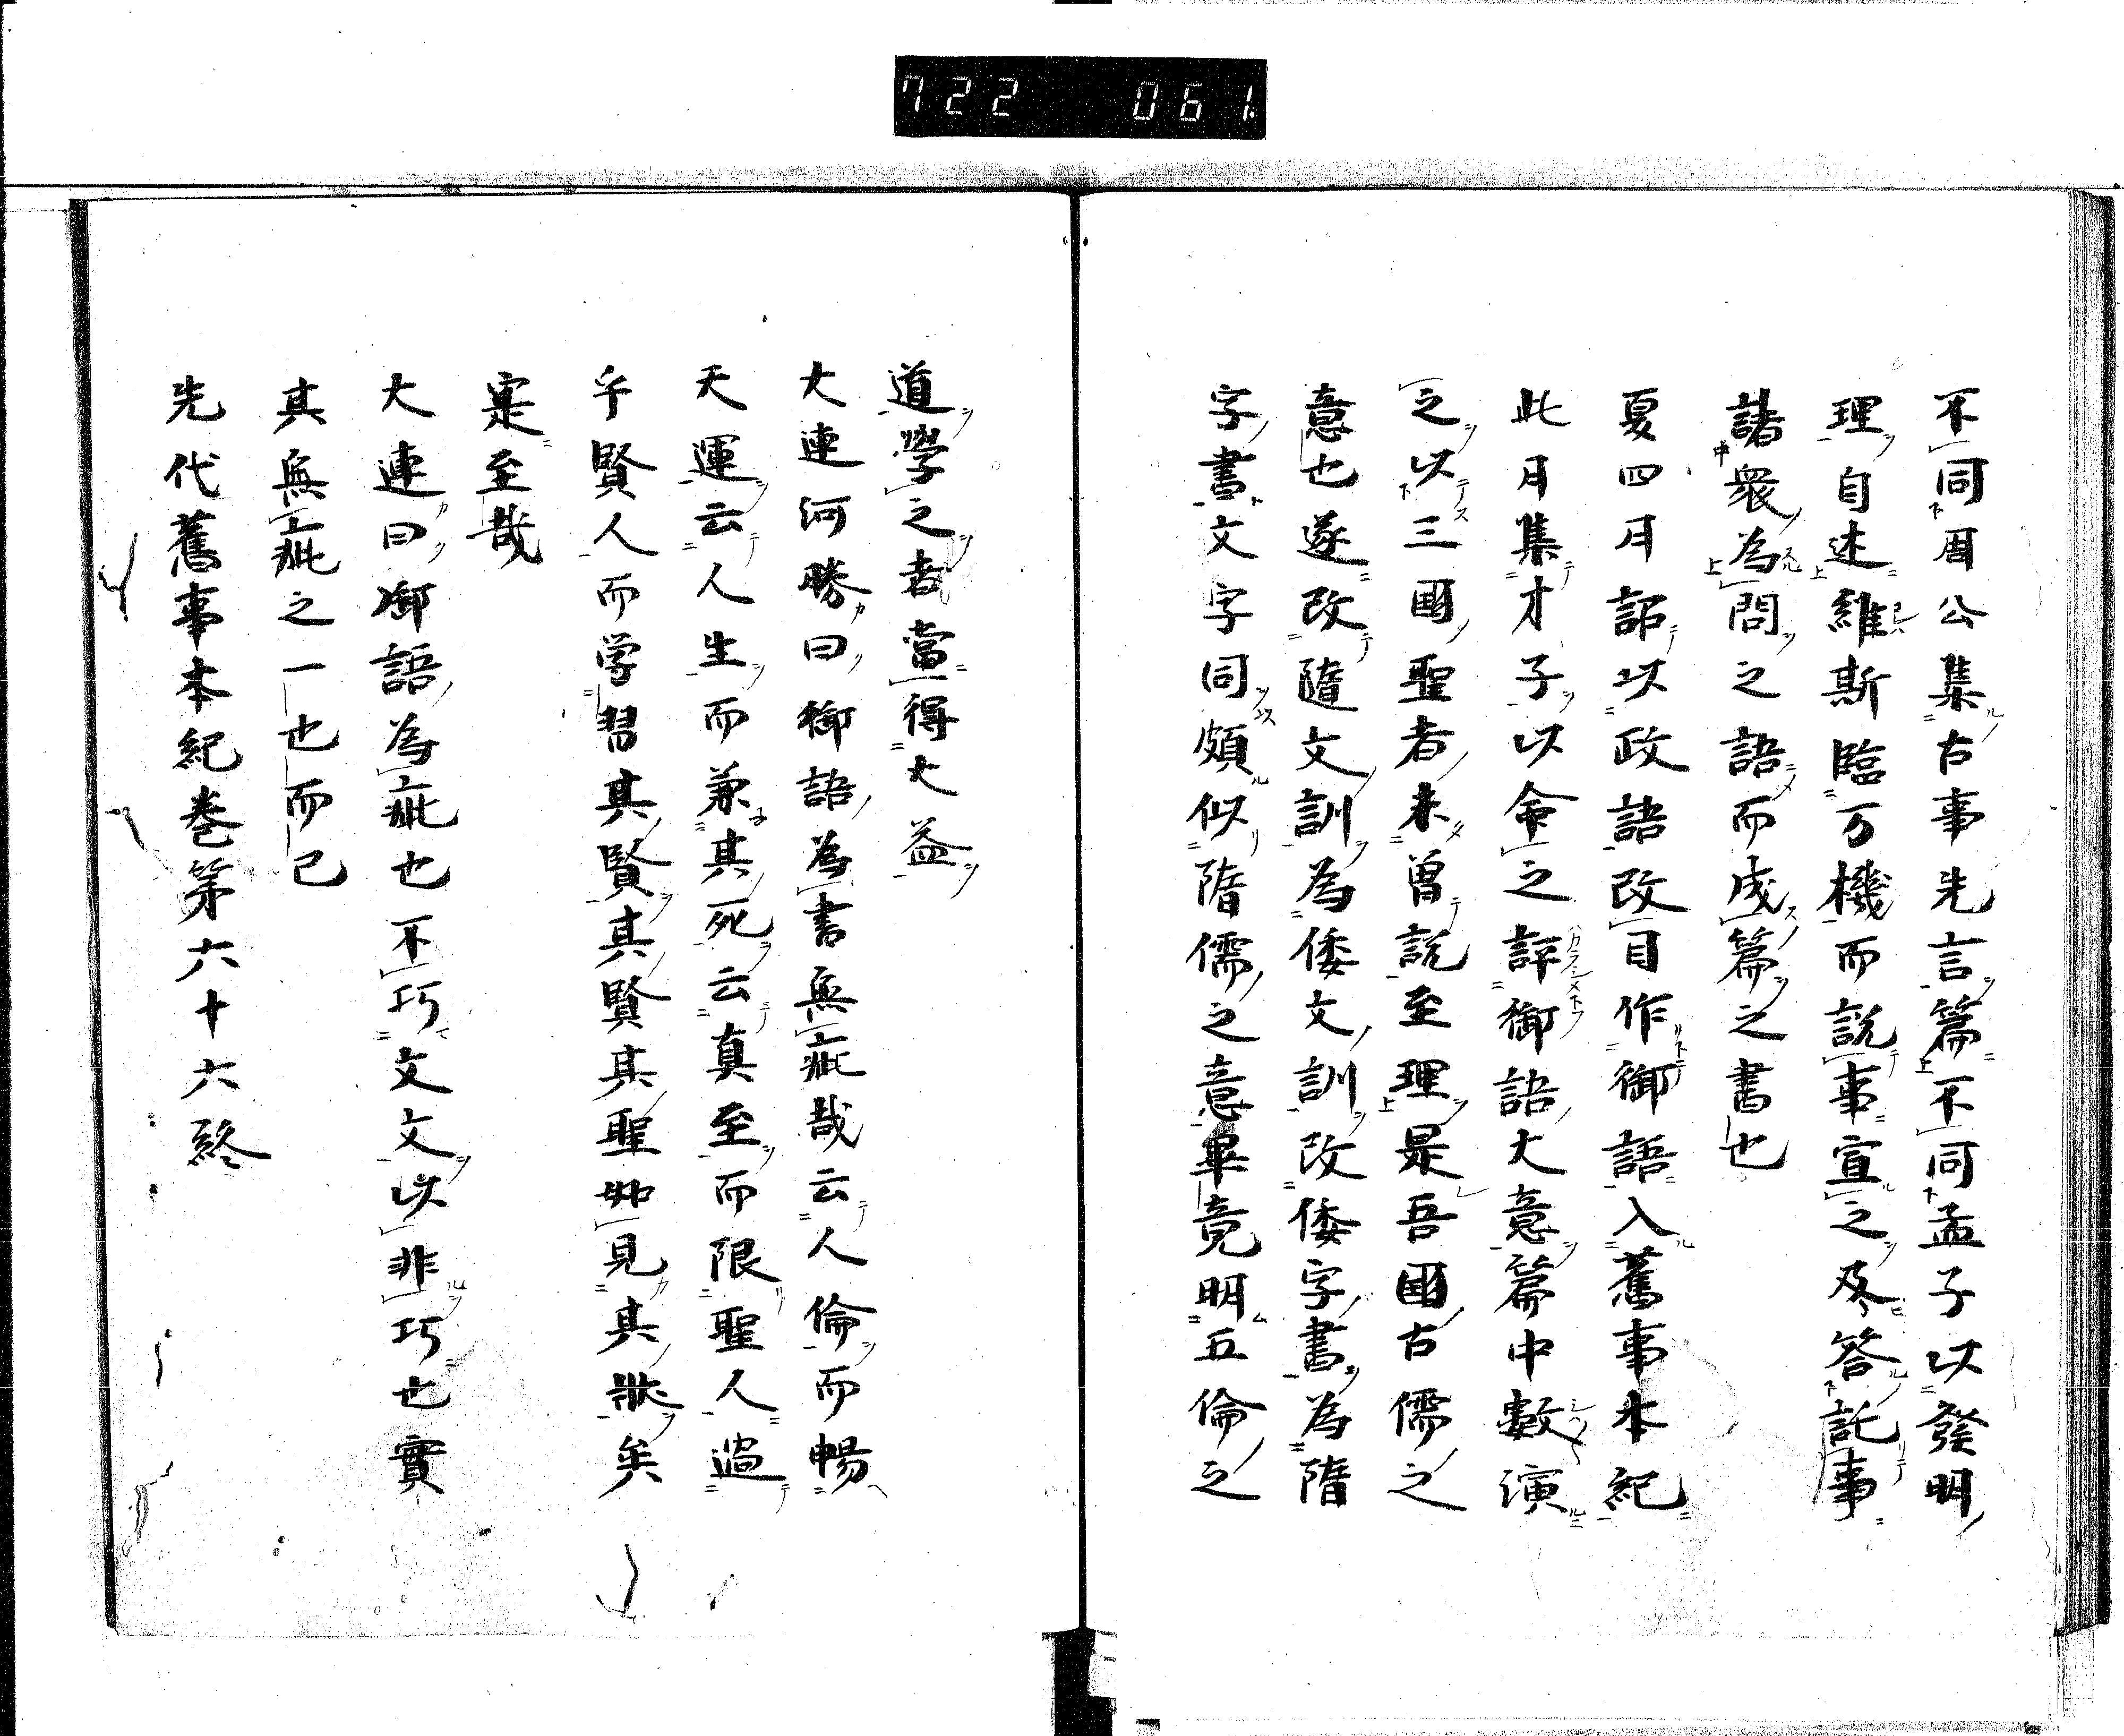 722 061
不同周公集古事先言篇不同孟子以發明
理自述維斯臨万機而説事宣之及答託事
諸衆為問之語而成篇之書也
夏四月詔以政語改目作御語入舊事本紀
此月集才子以命之評御語大意篇中數演
之以三國聖者未曽説至理是吾國古儒之
意也遂改隨文訓為倭文訓改倭字書為隋
字書文字同頗似隋儒之意畢竟明五倫之
道學之者當得大益
大連河勝曰御語為書無疵哉云人倫而暢
天運云人生而兼其死云真至而限聖人過
乎賢人而学習其賢其賢其聖如見其状矣
寔至哉
大連曰御語為疵也不巧文文以非巧也實
其無疵之一也而已
先代舊事本紀巻第六十六終